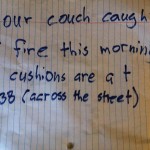 our couch caugh
fire this morning
cushions are at
38 (across the street)